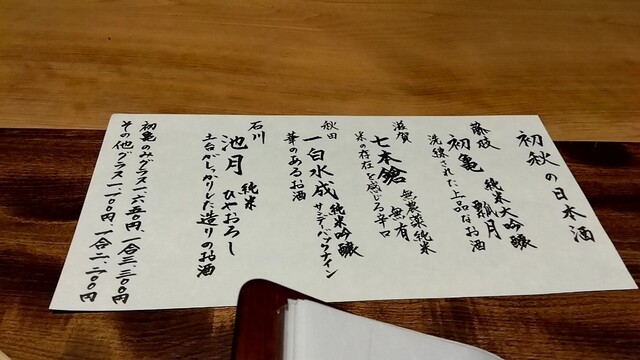 初秋の日本酒
藤枝
初亀 純米大吟醸 瓢月
洗練された上品なお酒
滋賀
七本鎗 無農薬純米 無有
米の存在を感じる辛口
秋田
一白水成 純米吟醸 サンデーバックナイン
華のあるお酒
石川
池月 純米 ひやおろし
土台がしっかりした造りのお酒
初亀のみグラス一、六五〇円、一合三、三〇〇円
その他グラス一、一〇〇円、一合二、二〇〇円